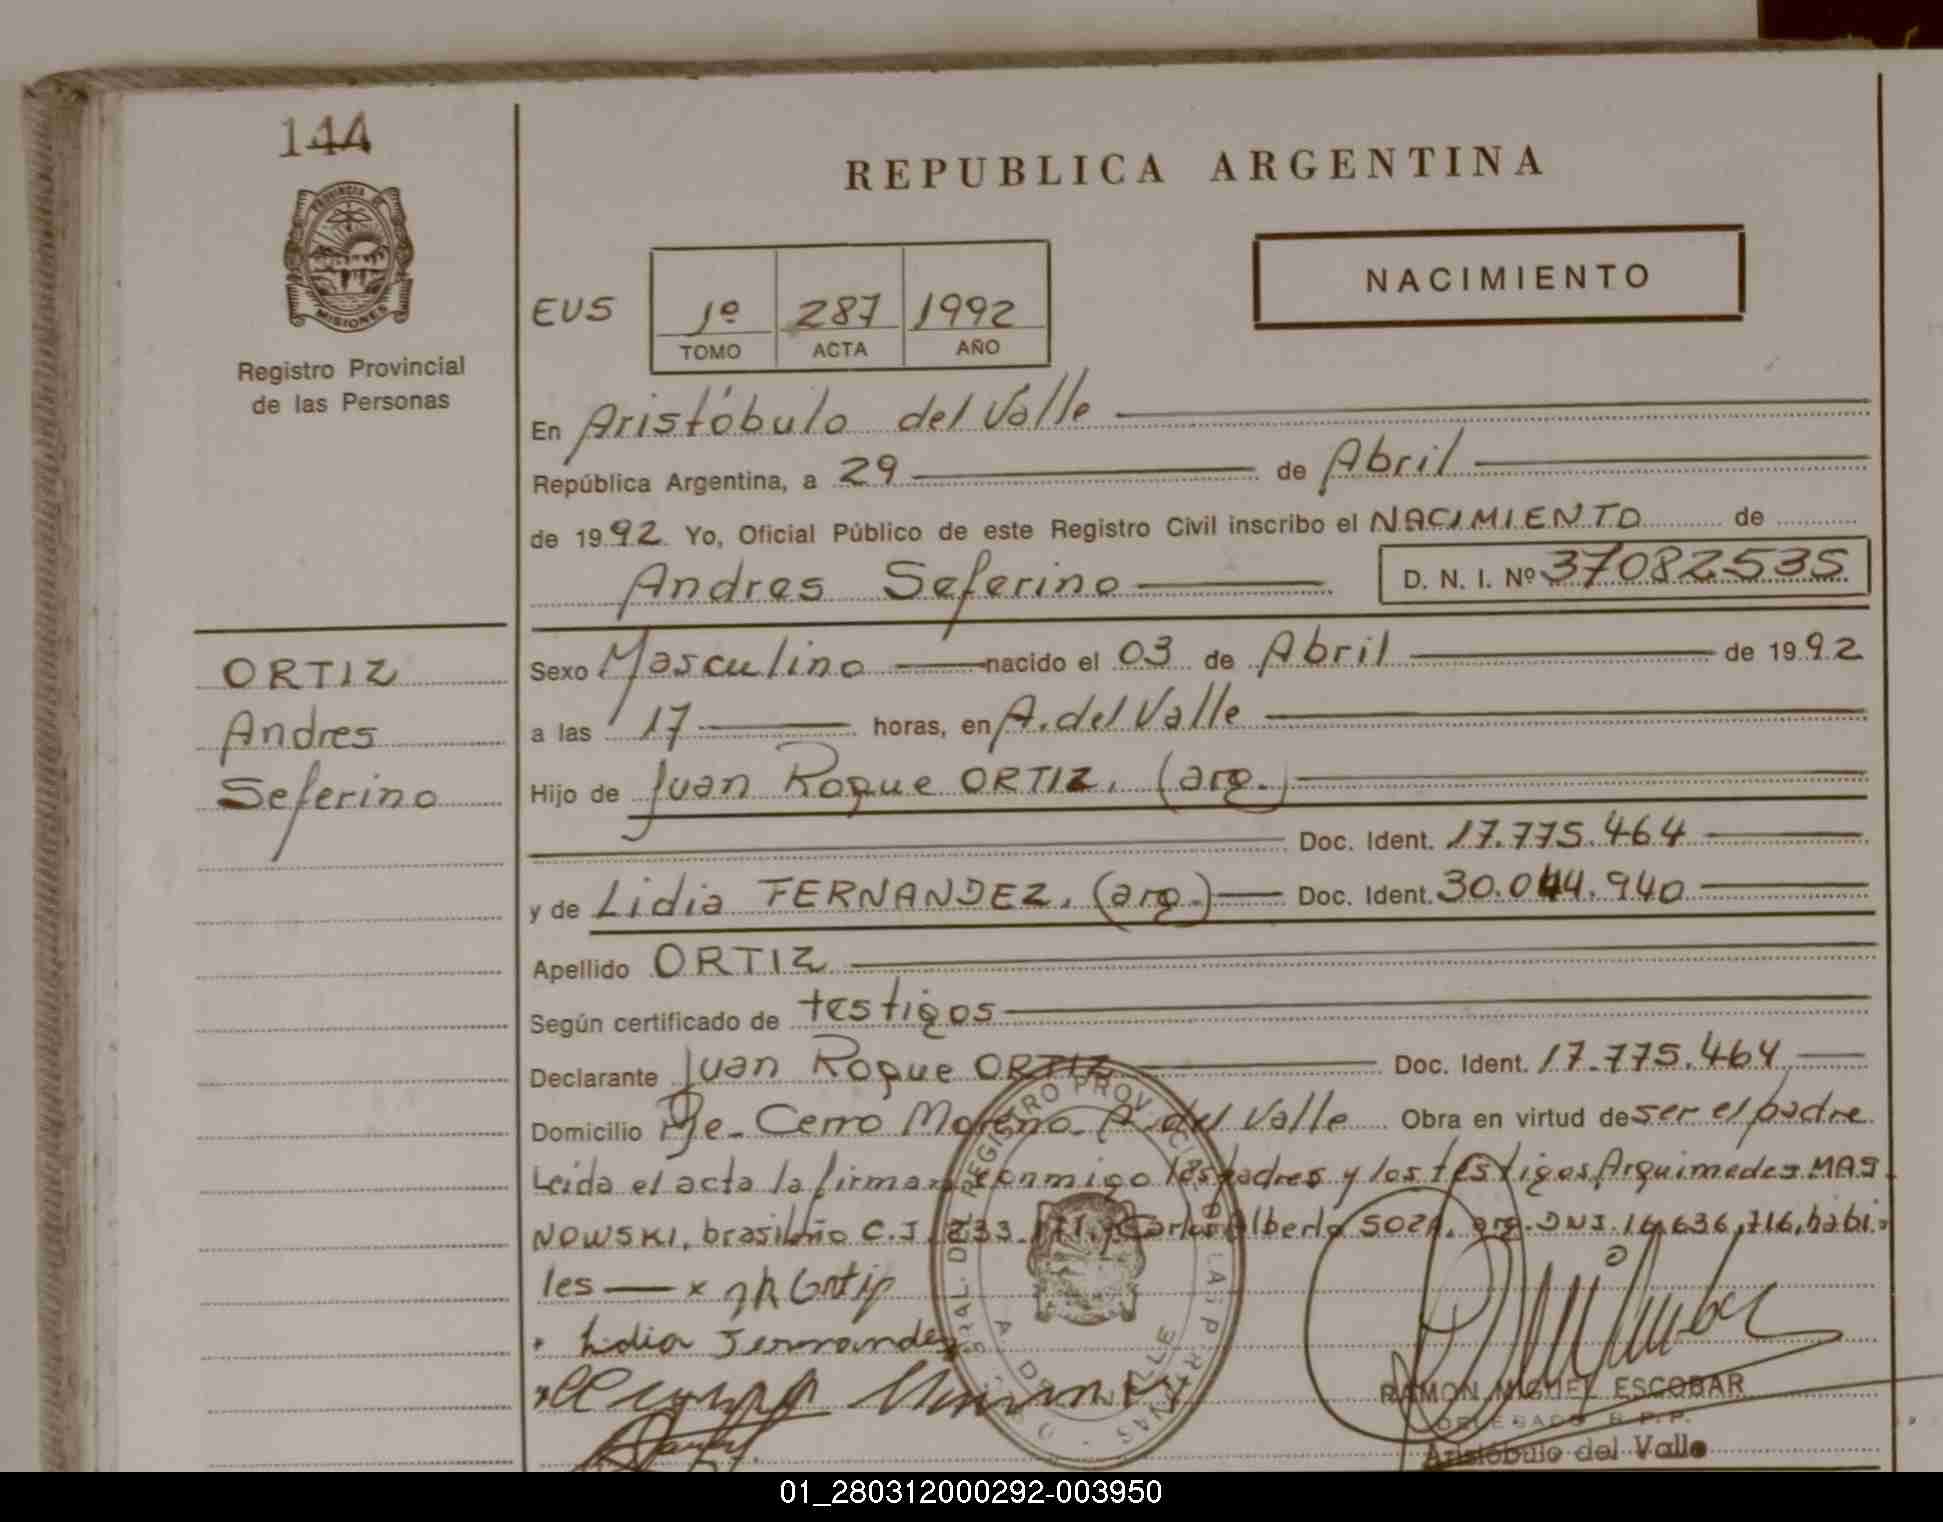 144
PROVINCIA
MISIONES
Registro Provincial
de las Personas
ORTIZ
Andres
Seferino
REPUBLICA ARGENTINA
NACIMIENTO
EUS
1º 287 1992
TOMO ACTA AÑO
En Aristóbulo del Valle
República Argentina, a 29 de Abril
de 1992 Yo, Oficial Público de este Registro Civil inscribo el NACIMIENTO de
Andres Seferino D. N. I. Nº 37082535
Sexo Masculino nacido el 03 de Abril de 1992
a las 17 horas, en A. del Valle
Hijo de Juan Roque ORTIZ. (arg.)
Doc. Ident. 17.775.464
y de Lidia FERNANDEZ. (arg.) Doc. Ident. 30.044.940
Apellido ORTIZ
Según certificado de testigos
Declarante Juan Roque ORTIZ Doc. Ident. 17.775.464
Domicilio Pje. Cerro Moreno - A. del Valle Obra en virtud de ser el padre
Leida el acta la firman conmigo los padres y los testigos Arquimedes MAS
NOWSKI, brasileño C.I. 233. y Carlos Alberto SOZA, arg. DNI. 14.636.716, habi
les x Ortiz
Lidia Fernandez
RAMON MIGUEL ESCOBAR
DELEGADO R.P.P.
Aristóbulo del Valle
01_280312000292-003950